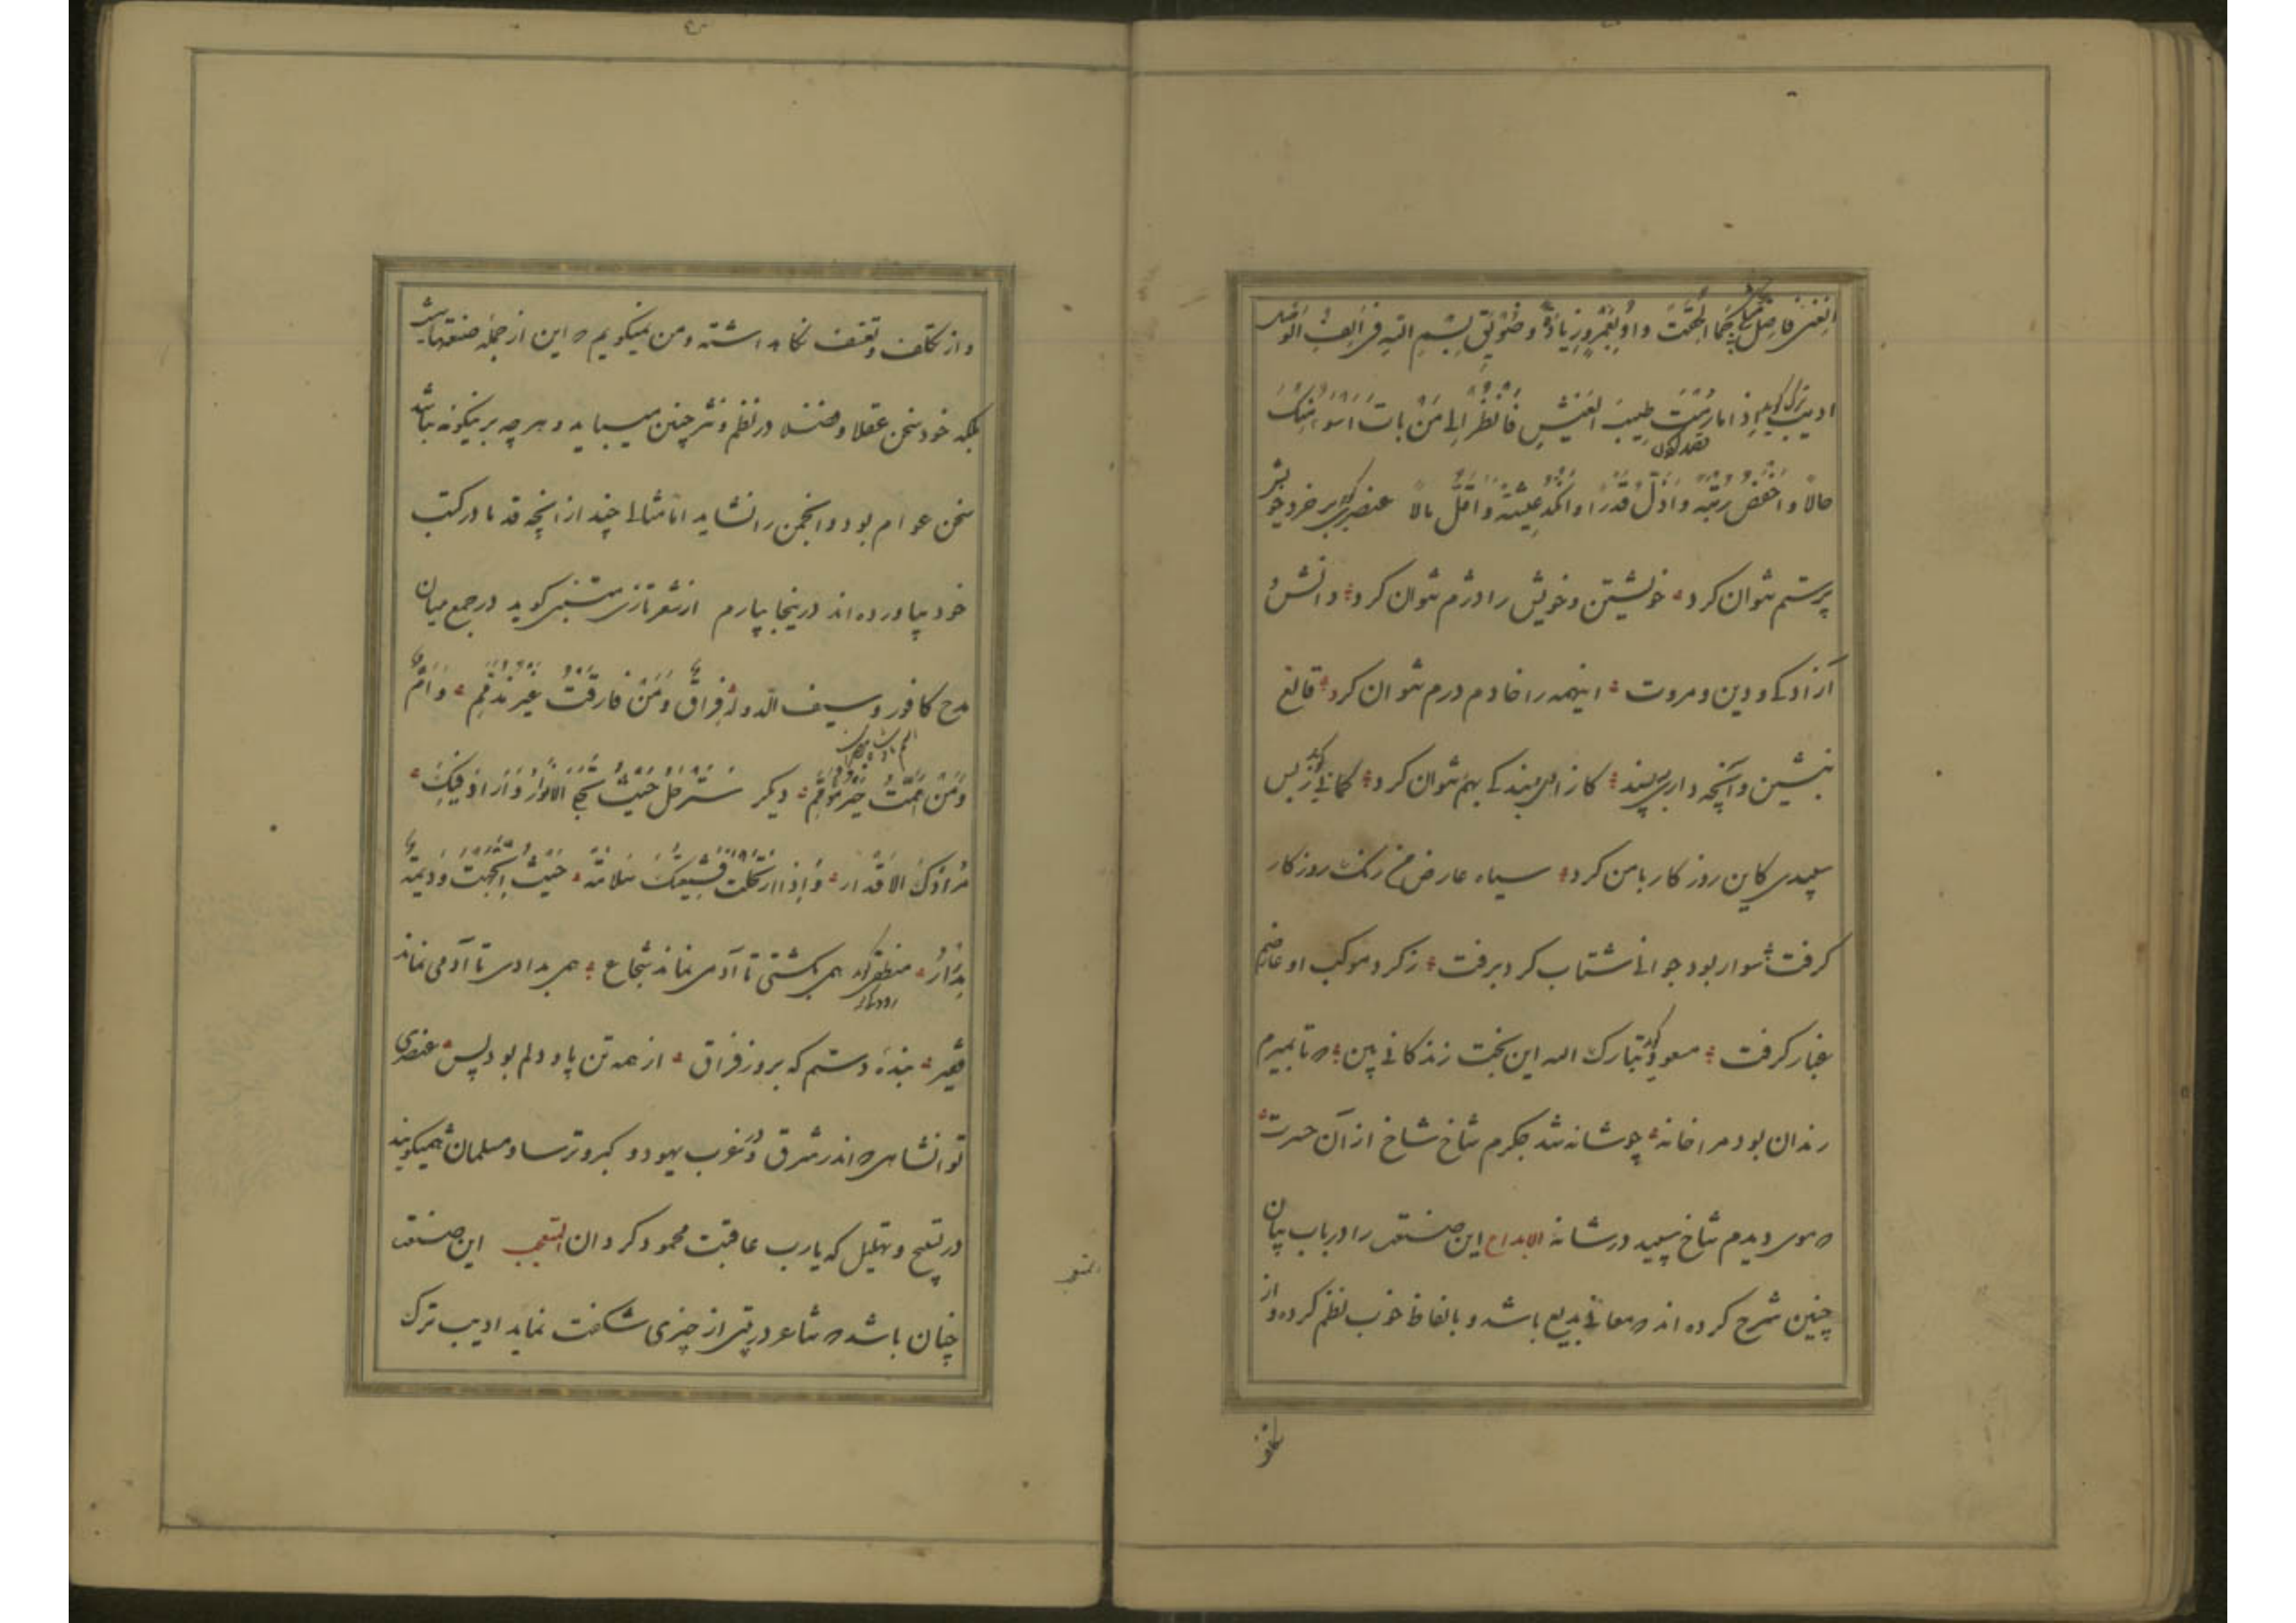 ادیب ترک گوید اذا ما رُمْتَ طِیبَ العَیْشِ فَانْظُرْ اِلی مَنْ باتَ اَسْوَاَ مِنْکَ
حالاً وَاَخْفَضَ رُتْبَةً وَاَذَلَّ قَدْرًا وَاَنْکَدَ عِیشَةً وَاَقَلَّ مالاً عنصری گوید بر خرد خویش
بر ستم نتوان کرد خویشتن و خویش را دژم نتوان کرد دانش و
آزادکی و دین و مروت اینهمه را خادم درم نتوان کرد قانع
بنشین و آنچه داری بپسند کازادی و بندکی بهم نتوان کرد کمانی گوید زبس
سپیدی کاین روزکار با من کرد سیاه عارض من رنک روزکار
کرفت سوار بود جوانی شتاب کرد برفت ز کرد موکب او عارضم
غبار کرفت مسعود گوید تبارک الله این بخت زندکانی بین که تا بمیرم
زندان بود مرا خانه چو شانه شد جکرم شاخ شاخ از آن حسرت
که موی دیدم شاخ سپید در شانه الابداع این صنعت را در باب بیان
چنین شرح کرده اند که معانی بدیع باشد و بالفاظ خوب نظم کرده و از
و از تکلف و تعسف نکاه داشته و من میکویم که این از جمله صنعتها نیست
بلکه خود سخن عقلا و فضلا در نظم و نثر چنین میباید و هرچه برینکونه نباشد
سخن عوام بود و انجمن را نشاید اما مثالی چند از آنچه قدما در کتب
خود بیاورده اند درینجا بیارم از شعر تازی متنبی کوید در جمع میان
مدح کافور و سیف الدوله فِراقٌ وَمَنْ فارَقْتُ غَیْرُ مُذَمَّمِ وَاَمٌّ
وَمَنْ یَمَّمْتُ خَیْرُ مُیَمَّمِ دیکر سِرْ حَلَّ حَیْثُ تَحُلُّهُ الانوارُ وَاَرادَ فیکَ
مُرادَکَ الاَقْدارُ وَاِذا ارْتَحَلْتَ فَشَیَّعَتْکَ سَلامَةٌ حَیْثُ اتَّجَهْتَ وَدیمَةٌ
مِدْرارُ منطقی گوید همی بکشتی تا آدمی نماند شجاع همی بدادی تا آدمی نماند
فقیر رودکی بنده دستم که بروز فراق از همه تن یار دلم بود و بس عنصری
تو آن شاهی که اندر شرق و در غرب یهود و کبر و ترسا و مسلمان همیکویند
در تسبیح و تهلیل که یارب عاقبت محمود کردان التعجب این صنعت
چنان باشد که شاعر در بیتی از چیزی شکفت نماید ادیب ترک